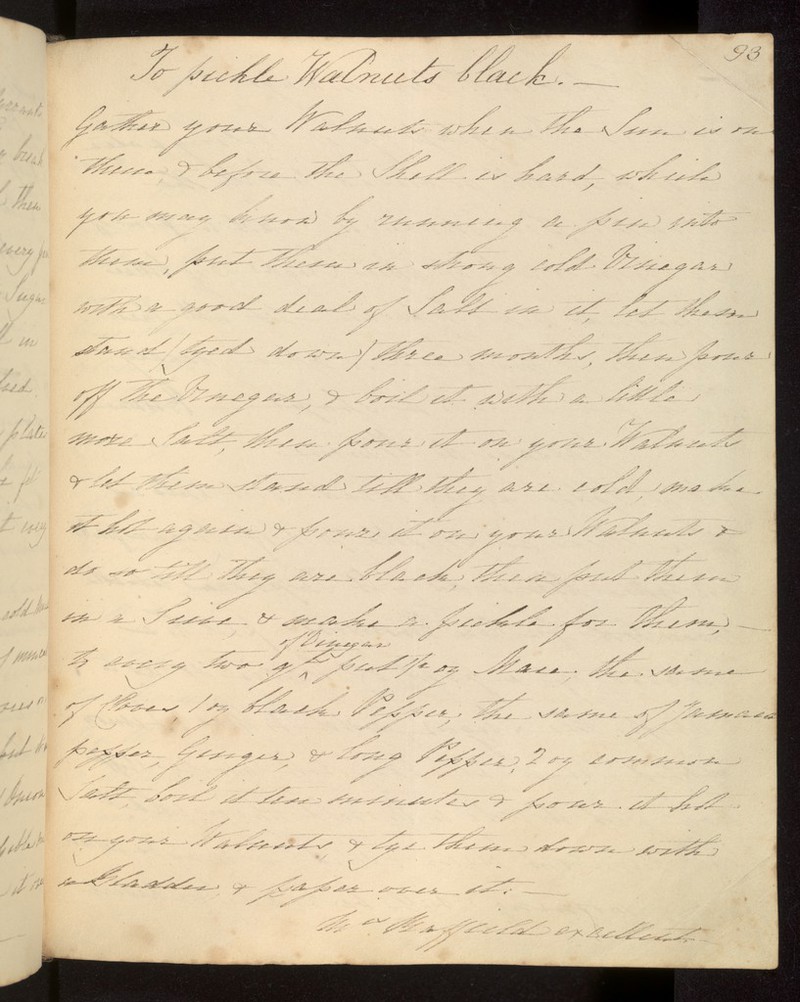 93
To pickle Walnuts black. —
Gather your Walnuts when the Sun is on
them, & before the Shell is hard, which
you may know by running a pin into
them, put them in strong cold Vinegar
with a good deal of Salt in it, let them
stand (tyed down) three months, then pour
off the Vinegar, & boil it with a little
more Salt, then pour it on your Walnuts
& let them stand till they are cold, make
it hot again & pour it on your Walnuts &
do so till they are black, then put them
in a Sive, & make a pickle for them, —
to every two qts of Vinegar put oz Mace, the same
of Cloves, 1 oz black Pepper, the same of Jamaica
pepper, Ginger, & long Pepper, 2 oz common
Salt, boil it ten minutes & pour it hot
on your Walnuts, & tye them down with
a Bladder, & paper over it. —
excellent